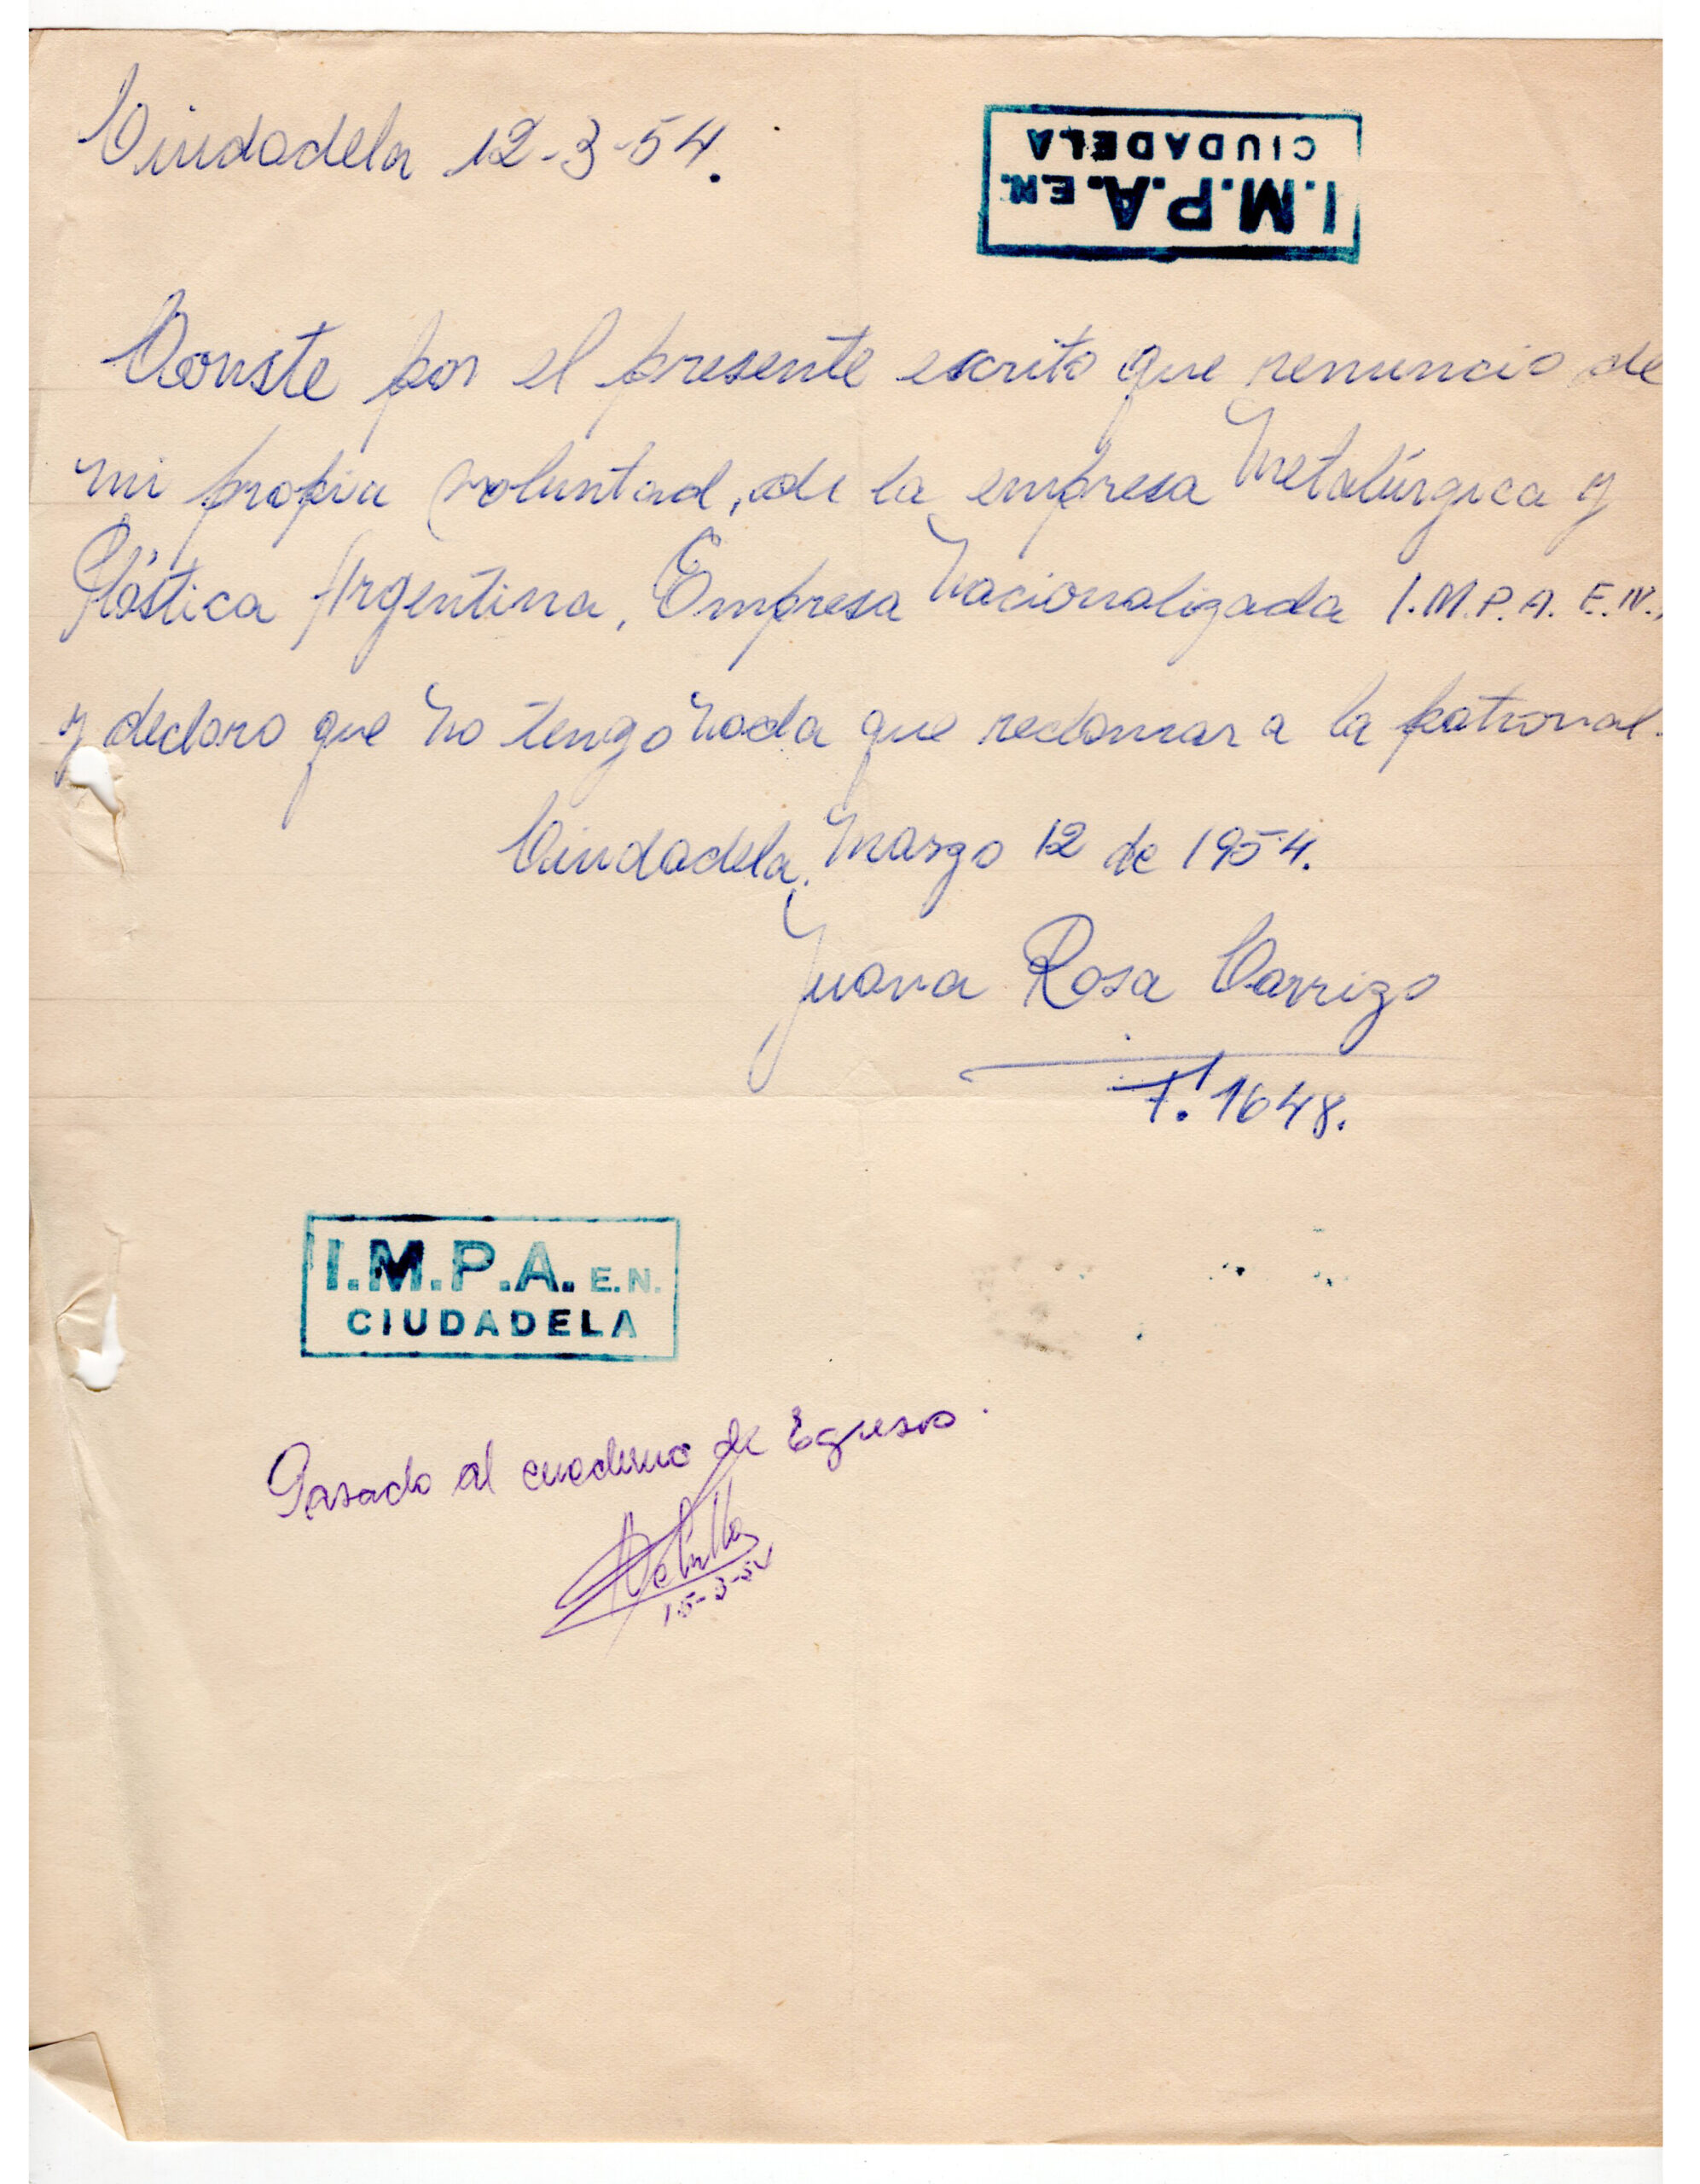 Ciudadela 12-3-54.
I.M.P.A. E.N.
CIUDADELA
Conste por el presente escrito que renuncio de
mi propia voluntad, de la empresa Metalúrgica y
Plástica Argentina, Empresa Nacionalizada I.M.P.A. E.N.,
y declaro que no tengo nada que reclamar a la patronal.
Ciudadela, Marzo 12 de 1954.
Juana Rosa Carrizo
F. 1648.
I.M.P.A. E.N.
CIUDADELA
Pasado al cuaderno de Egreso.
15-3-54